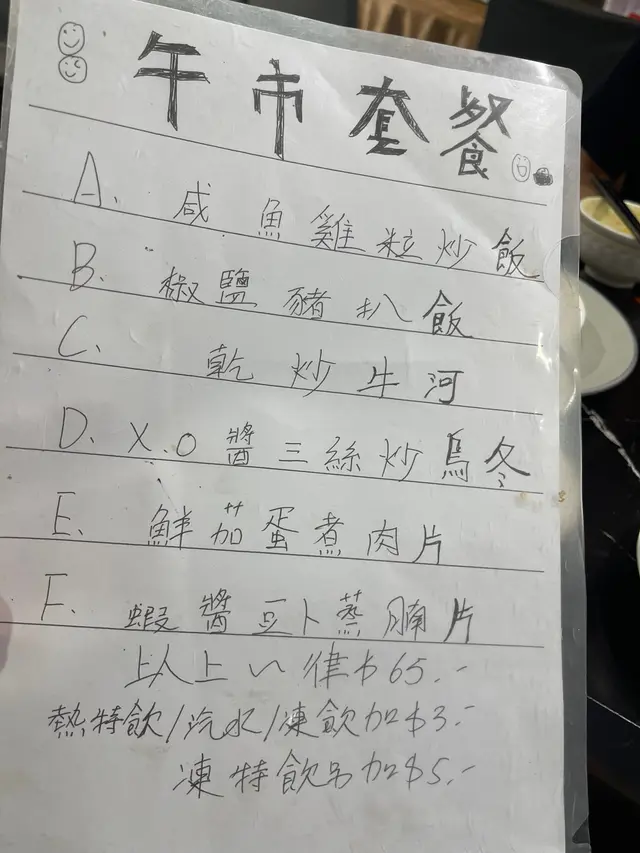 午市套餐
A. 咸魚雞粒炒飯
B. 椒鹽豬扒飯
C. 乾炒牛河
D. X.O醬三絲炒烏冬
E. 鮮茄蛋煮肉片
F. 蝦醬豆卜蒸腩片
以上一律$65.-
熱特飲/汽水/凍飲加$3.-
凍特飲另加$5.-